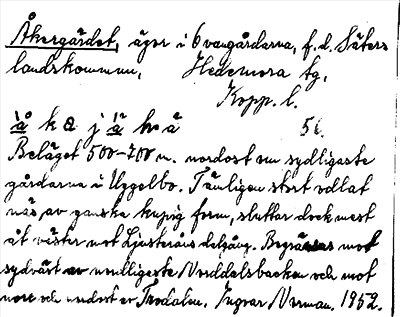 Åkergärdet, äger i Ovangårdarna, f.d. Säters
landskommun, Hedemora tg,
Kopp. l.
å k a j ä ḷ a 51.
Beläget 500-700 m. nordost om sydligaste
gårdarna i Uggelbo. Tämligen stort odlat
näs av ganska kupig form, sluttar dock mest
åt väster mot Ljusteråns dalgång. Begränsas mot
sydväst av nordligaste Norddalsbacken och mot
norr och nordost av Trodalen. Ingvar Norman. 1952.